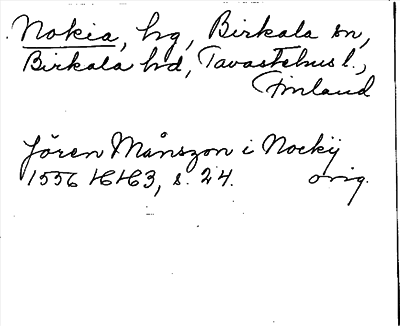 Nokia, hg, Birkala sn,
Birkala hd, Tavastehus l.,
Finland
Jören Månszon i Nockÿ
1556 HH3, s. 24. orig.